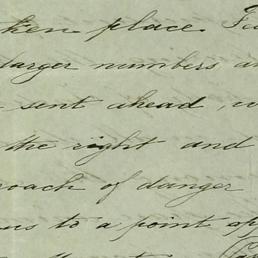 ken place.
larger numbers
sent ahead,
the right and
roach of danger
us to a point